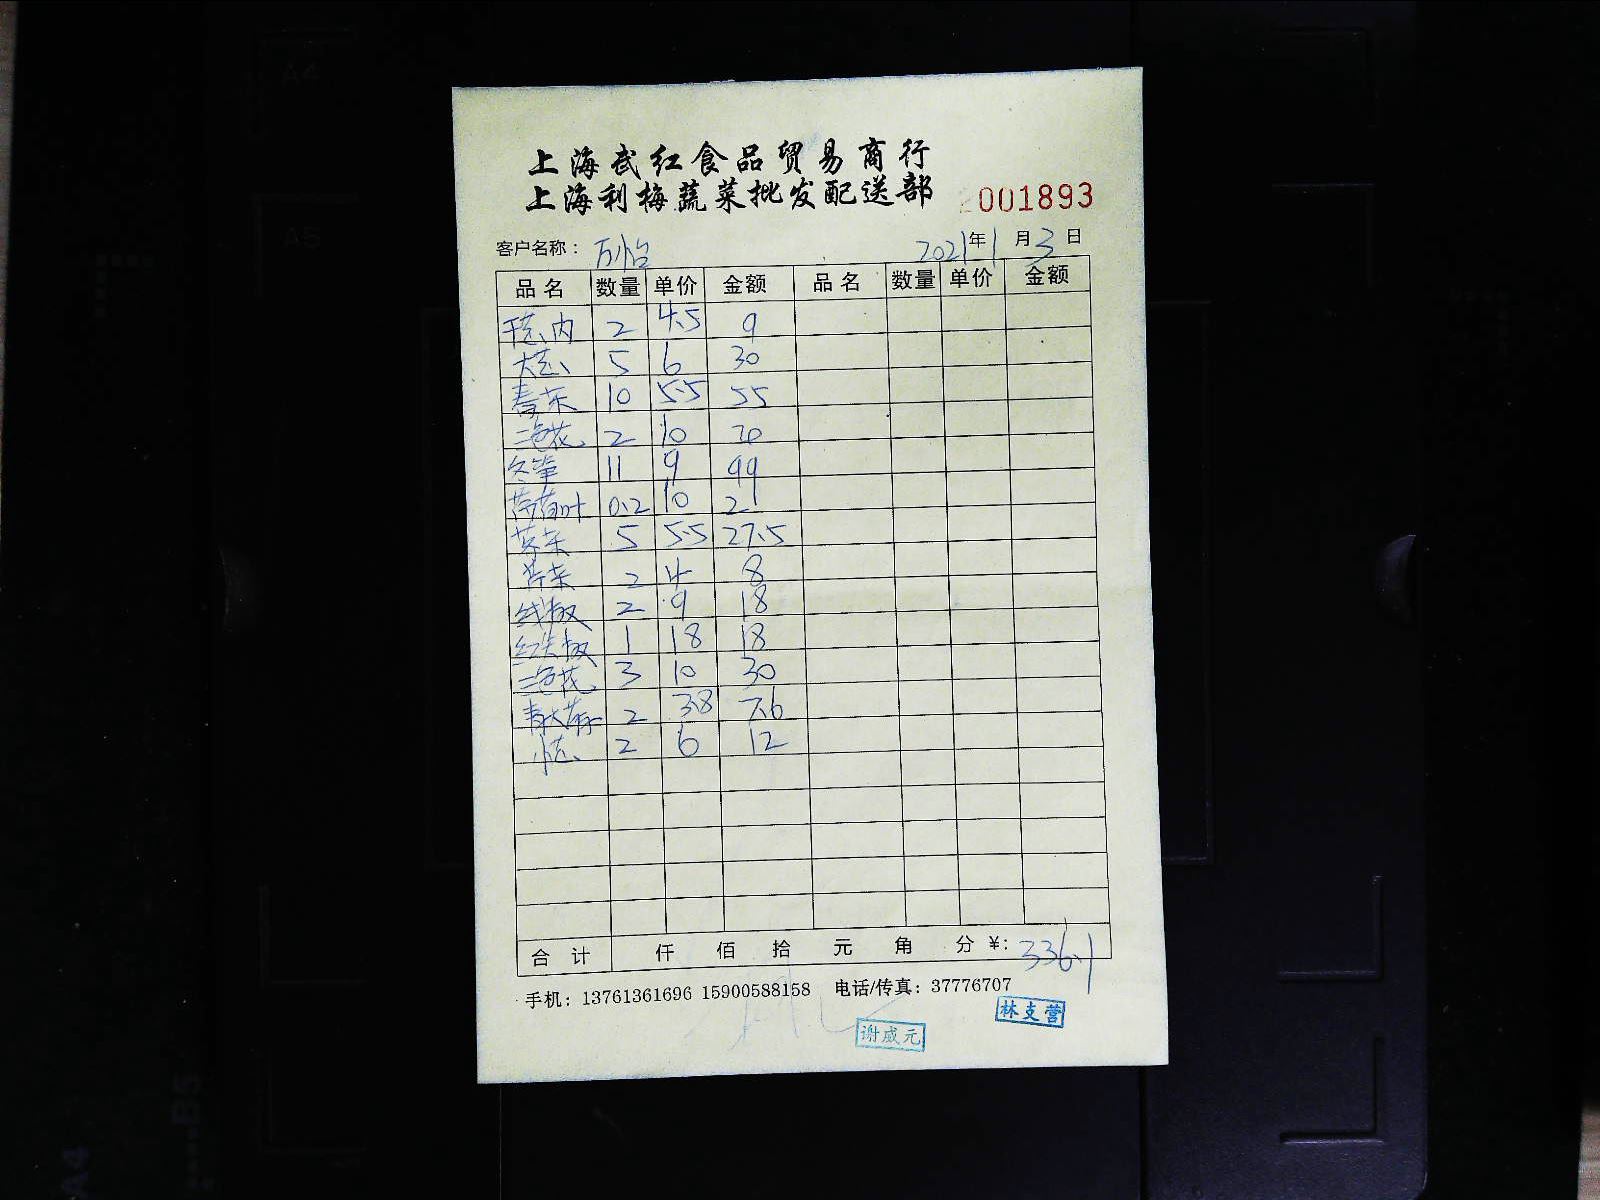 上海武红食品贸易商行
上海利梅蔬菜批发配送部
001893
客户名称： 万怡 2021年1月3日
品名 数量 单价 金额 品名 数量 单价 金额
干葱肉 2 4.5 9
大葱 5 6 30
青菜 10 5.5 55
三色花 2 10 20
冬笋 11 9 99
薄荷叶 0.2 10 2
芥菜 5 5.5 27.5
2 4 8
线椒 2 9 18
红尖椒 1 18 18
三色花 3 10 30
青大蒜 2 3.8 7.6
小葱 2 6 12
合计 仟 佰 拾 元 角 分 ¥: 336.1
手机：13761361696 15900588158 电话/传真：37776707
林支营
谢成元